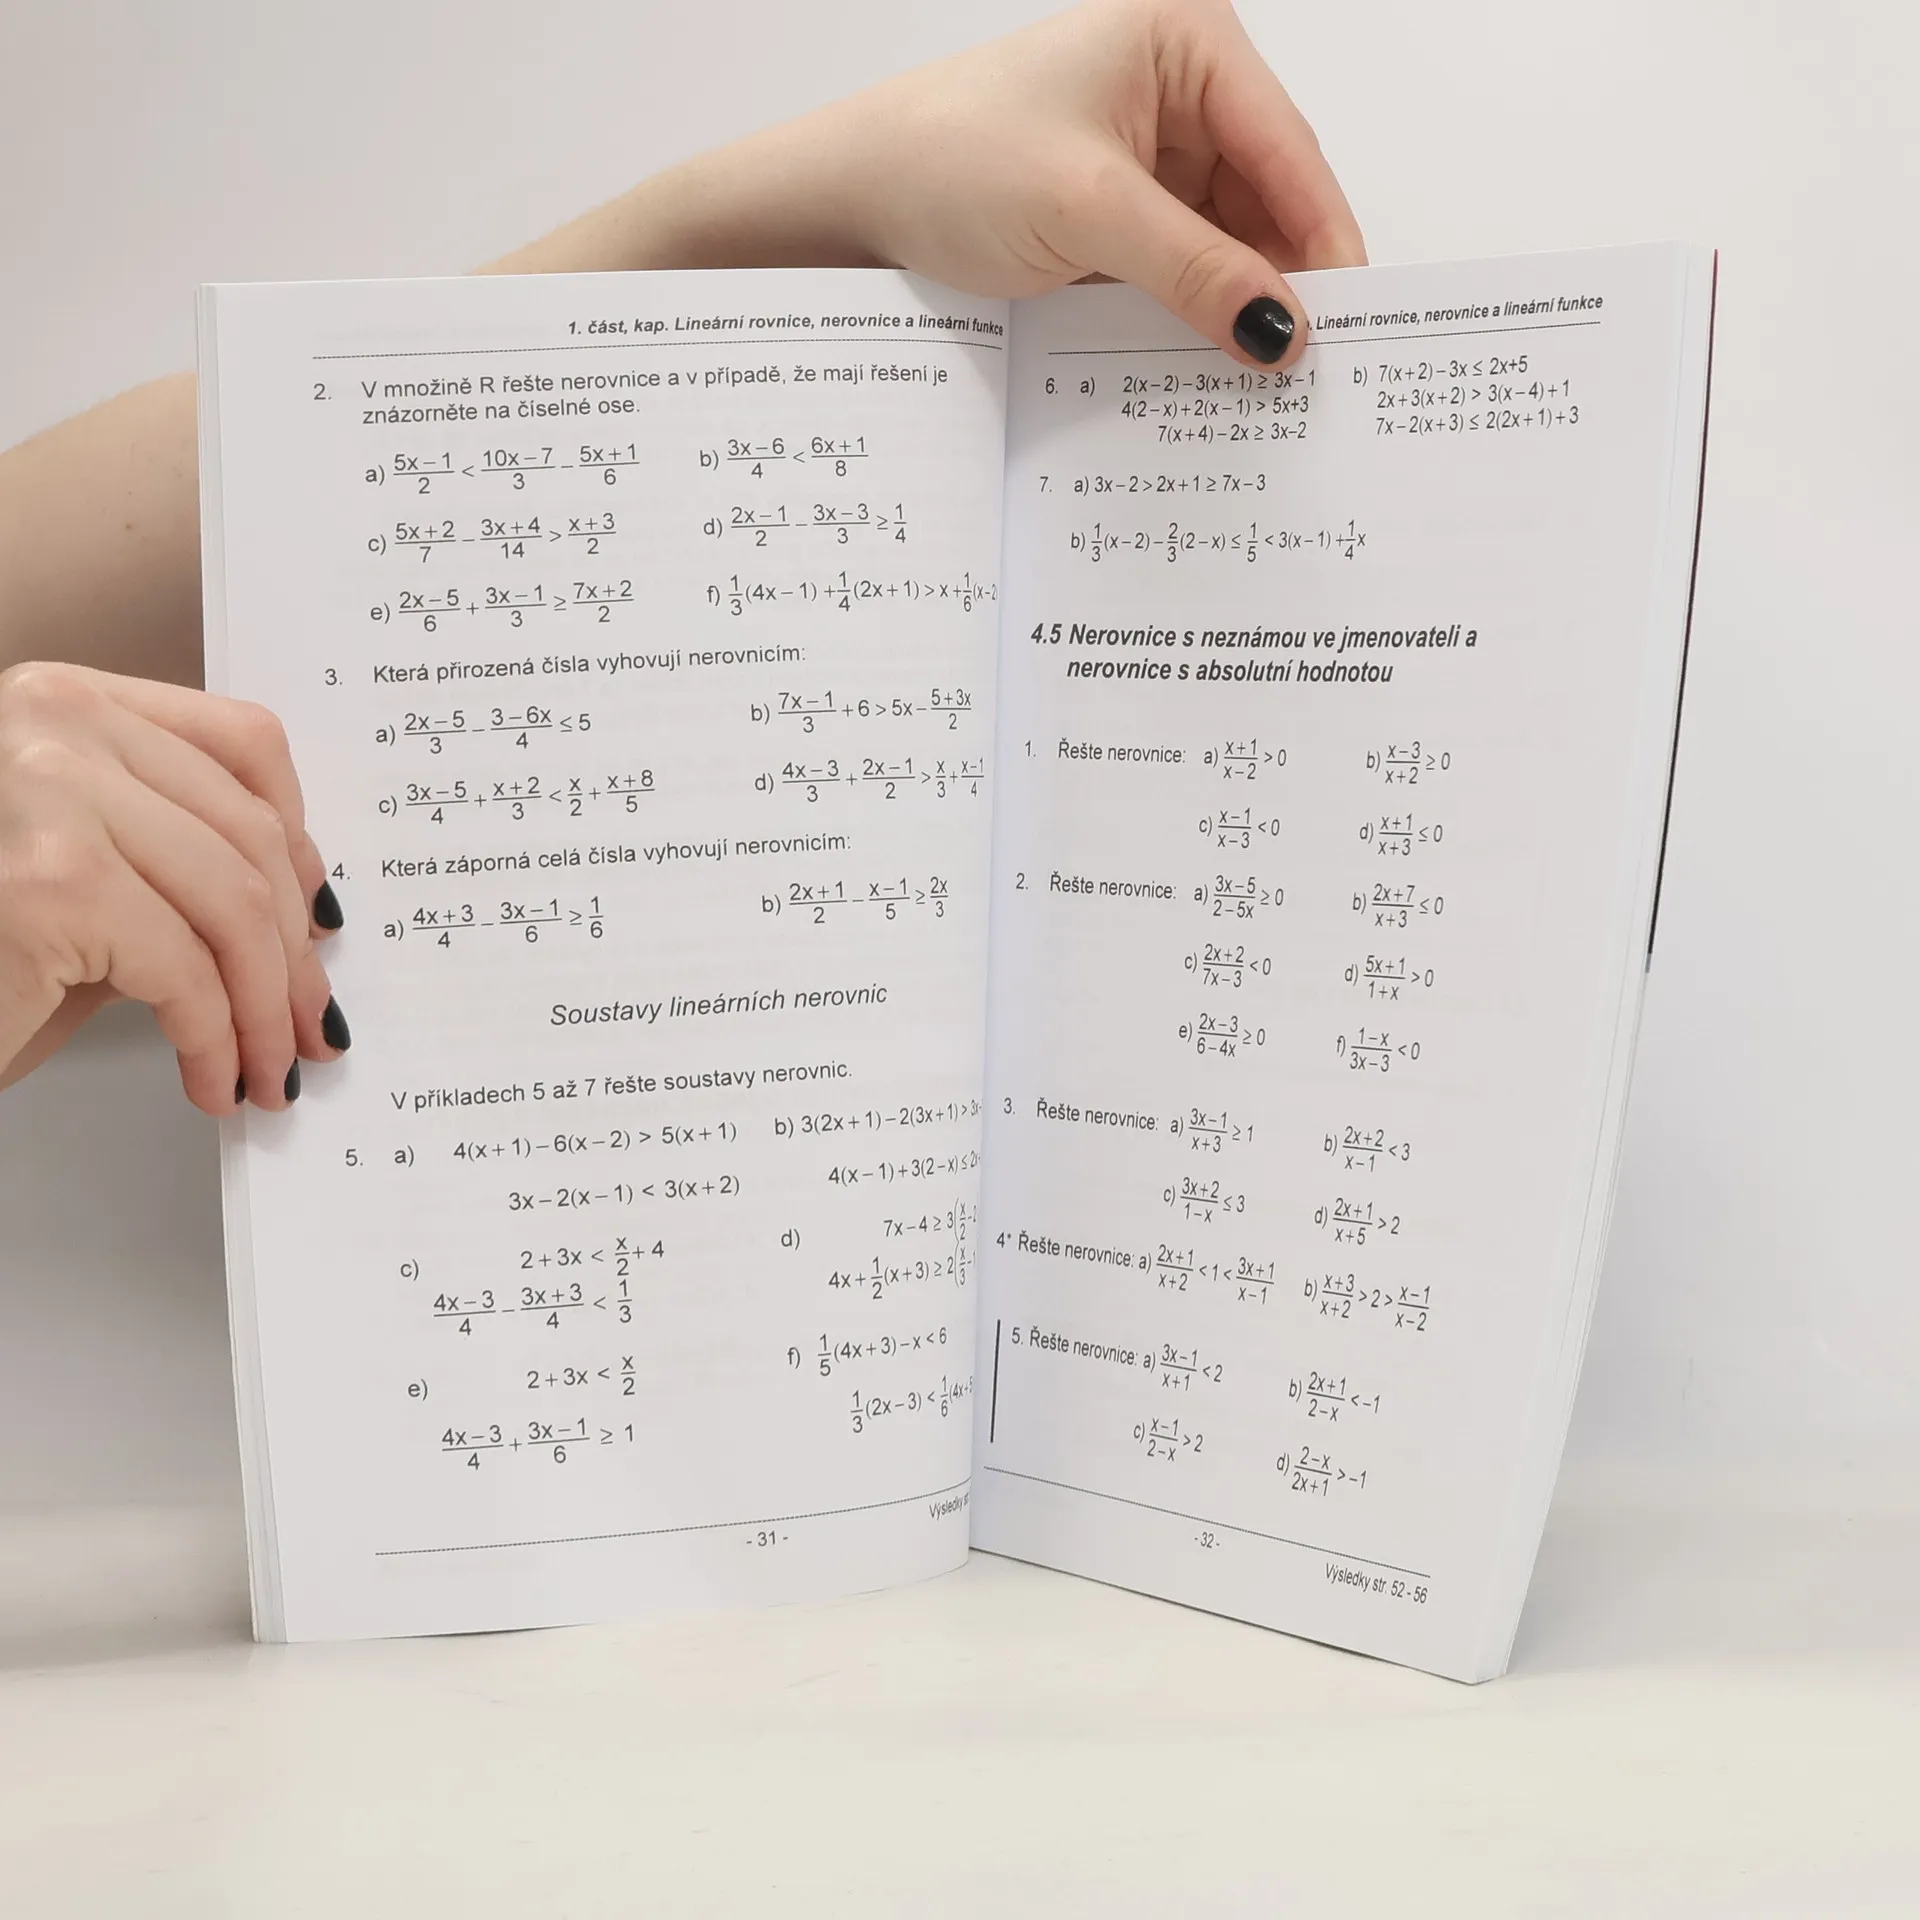 1. část, kap. Lineární rovnice, nerovnice a lineární funkce
2. V množině R řešte nerovnice a v případě, že mají řešení je
znázorněte na číselné ose.
a) (5x−1)/2 < (10x−7)/3 − (5x+1)/6 b) (3x−6)/4 < (6x+1)/8
c) (5x+2)/7 − (3x+4)/14 > (x+3)/2 d) (2x−1)/2 − (3x−3)/3 ≥ 1/4
e) (2x−5)/6 + (3x−1)/3 ≥ (7x+2)/2 f) 1/3(4x−1)+1/4(2x+1)>x+1/6(x−2
3. Která přirozená čísla vyhovují nerovnicím:
a) (2x−5)/3 − (3−6x)/4 ≤ 5 b) (7x−1)/3 +6>5x− (5+3x)/2
c) (3x−5)/4 + (x+2)/3 < x/2 + (x+8)/5 d) (4x−3)/3 + (2x−1)/2 > x/3 + (x−1)/4
4. Která záporná celá čísla vyhovují nerovnicím:
a) (4x+3)/4 − (3x−1)/6 ≥ 1/6 b) (2x+1)/2 − (x−1)/5 ≥ 2x/3
Soustavy lineárních nerovnic
V příkladech 5 až 7 řešte soustavy nerovnic.
5. a) 4(x+1)−6(x−2) > 5(x+1) b) 3(2x+1)−2(3x+1)>
3x−2(x−1) < 3(x+2) 4(x−1)+3(2−x)≤
c) 2+3x < x/2 + 4 d) 7x−4 ≥ 3(x/2 −
(4x−3)/4 − (3x+3)/4 < 1/3 4x+1/2(x+3) ≥ 2(x/3 −
e) 2+3x < x/2 f) 1/5(4x+3)−x<6
(4x−3)/4 + (3x−1)/6 ≥ 1 1/3(2x−3)<1/6(4x+
Výsledky
- 31 -
. Lineární rovnice, nerovnice a lineární funkce
6. a) 2(x−2)−3(x+1) ≥ 3x−1 b) 7(x+2)−3x ≤ 2x+5
4(2−x)+2(x−1) > 5x+3 2x+3(x+2) > 3(x−4)+1
7(x+4)−2x ≥ 3x−2 7x−2(x+3) ≤ 2(2x+1)+3
7. a) 3x−2>2x+1≥7x−3
b) 1/3(x−2)−2/3(2−x) ≤ 1/5 < 3(x−1)+1/4x
4.5 Nerovnice s neznámou ve jmenovateli a
nerovnice s absolutní hodnotou
1. Řešte nerovnice: a) (x+1)/(x−2) >0 b) (x−3)/(x+2) ≥0
c) (x−1)/(x−3) <0 d) (x+1)/(x+3) ≤0
2. Řešte nerovnice: a) (3x−5)/(2−5x) ≥0 b) (2x+7)/(x+3) ≤0
c) (2x+2)/(7x−3) <0 d) (5x+1)/(1+x) >0
e) (2x−3)/(6−4x) ≥0 f) (1−x)/(3x−3) <0
3. Řešte nerovnice: a) (3x−1)/(x+3) ≥1 b) (2x+2)/(x−1) <3
c) (3x+2)/(1−x) ≤3 d) (2x+1)/(x+5) >2
4* Řešte nerovnice: a) (2x+1)/(x+2) <1< (3x+1)/(x−1) b) (x+3)/(x+2) >2> (x−1)/(x−2)
5. Řešte nerovnice: a) (3x−1)/(x+1) <2 b) (2x+1)/(2−x) <−1
c) (x−1)/(2−x) >2 d) (2−x)/(2x+1) >−1
-32-
Výsledky str. 52 - 56